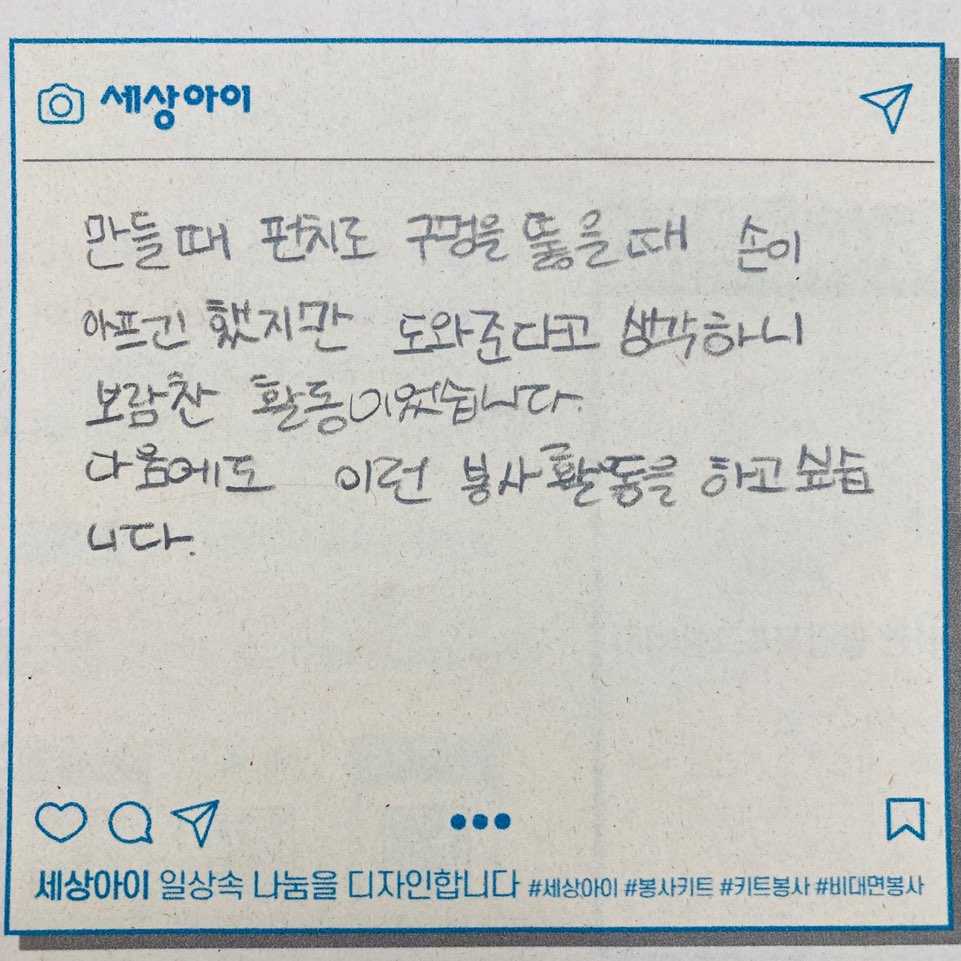 세상아이
만들때 펀치로 구멍을 뚫을때 손이
아프긴 했지만 도와준다고 생각하니
보람찬 활동이었습니다.
다음에도 이런 봉사활동을 하고싶습
니다.
세상아이 일상속 나눔을 디자인합니다 #세상아이 #봉사키트 #키트봉사 #비대면봉사